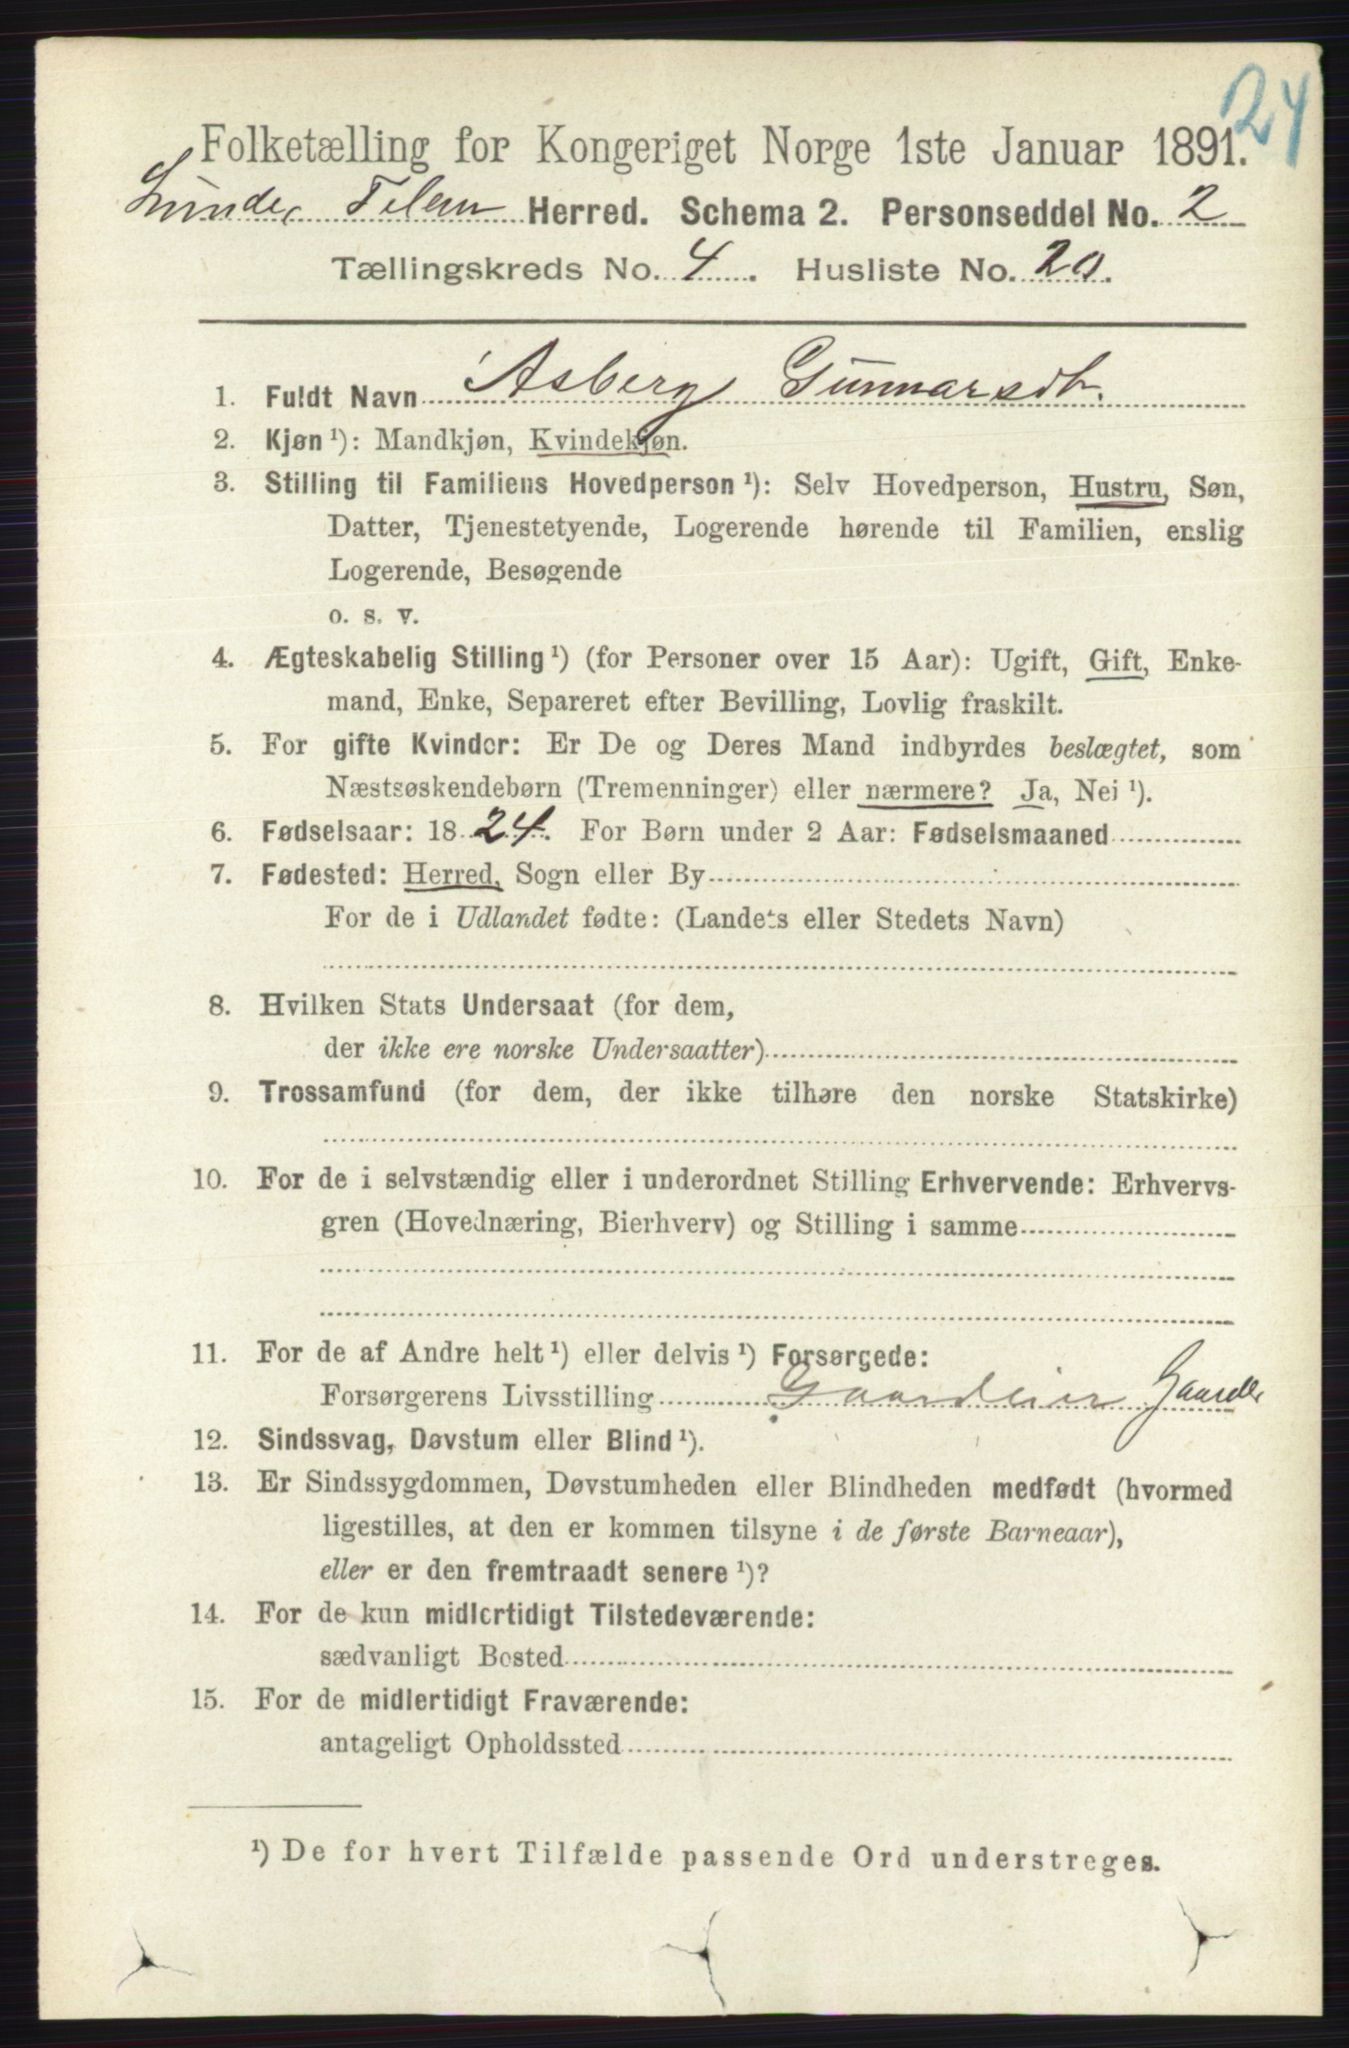 24
Folketælling for Kongeriget Norge 1ste Januar 1891.
Lunde Telem Herred. Schema 2. Personseddel No. 2
Tællingskreds No. 4. Husliste No. 20.
1. Fuldt Navn Asberg Gunnarsdt.
2. Kjøn ¹): Mandkjøn, Kvindekjøn.
3. Stilling til Familiens Hovedperson ¹): Selv Hovedperson, Hustru, Søn,
Datter, Tjenestetyende, Logerende hørende til Familien, enslig
Logerende, Besøgende
o. s. v.
4. Ægteskabelig Stilling ¹) (for Personer over 15 Aar): Ugift, Gift, Enke-
mand, Enke, Separeret efter Bevilling, Lovlig fraskilt.
5. For gifte Kvinder: Er De og Deres Mand indbyrdes beslægtet, som
Næstsøskendebørn (Tremenninger) eller nærmere? Ja, Nei ¹).
6. Fødselsaar: 1824. For Børn under 2 Aar: Fødselsmaaned
7. Fødested: Herred, Sogn eller By
For de i Udlandet fødte: (Landets eller Stedets Navn)
8. Hvilken Stats Undersaat (for dem,
der ikke ere norske Undersaatter)
9. Trossamfund (for dem, der ikke tilhøre den norske Statskirke)
10. For de i selvstændig eller i underordnet Stilling Erhvervende: Erhvervs-
gren (Hovednæring, Bierhverv) og Stilling i samme
11. For de af Andre helt ¹) eller delvis ¹) Forsørgede:
Forsørgerens Livsstilling Gaardeier
12. Sindssvag, Døvstum eller Blind ¹).
13. Er Sindssygdommen, Døvstumheden eller Blindheden medfødt (hvormed
ligestilles, at den er kommen tilsyne i de første Barneaar),
eller er den fremtraadt senere ¹)?
14. For de kun midlertidigt Tilstedeværende:
sædvanligt Bosted
15. For de midlertidigt Fraværende:
antageligt Opholdssted
¹) De for hvert Tilfælde passende Ord understreges.